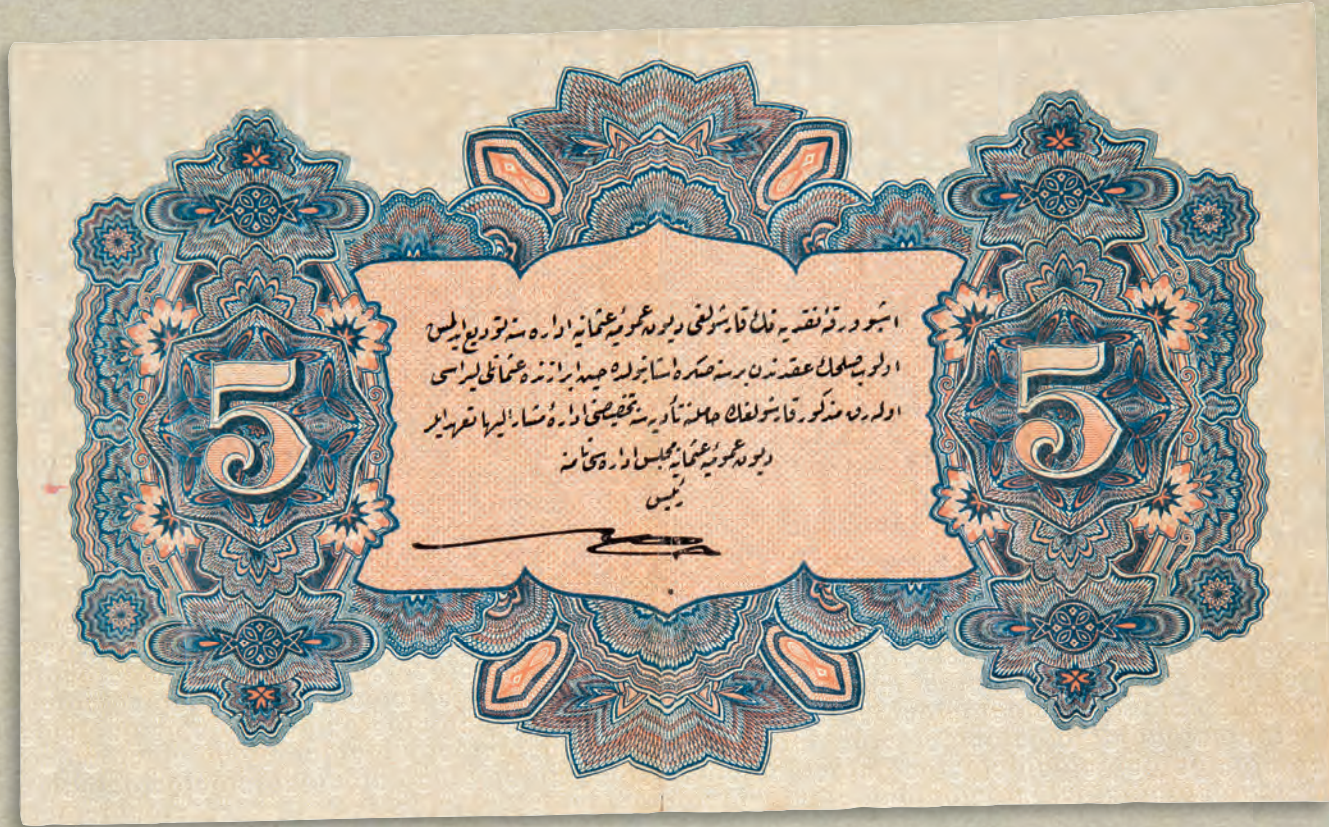 اشبو ورقۀ نقديه نك قارشولغى ديون عموميۀ عثمانيه اداره سنه توديع ايدلمش
اولوب صلحك عقدندن بر سنه صكره استانبولده حين ابرازنده عثمانلى ليراسى
اوله رق مذكور قارشولغك حاملنه تأديه سنه تخصيصنى ادارۀ مشار اليها تعهد ايلر
ديون عموميۀ عثمانيه مجلس اداره سى نامنه
رئيس
5
5